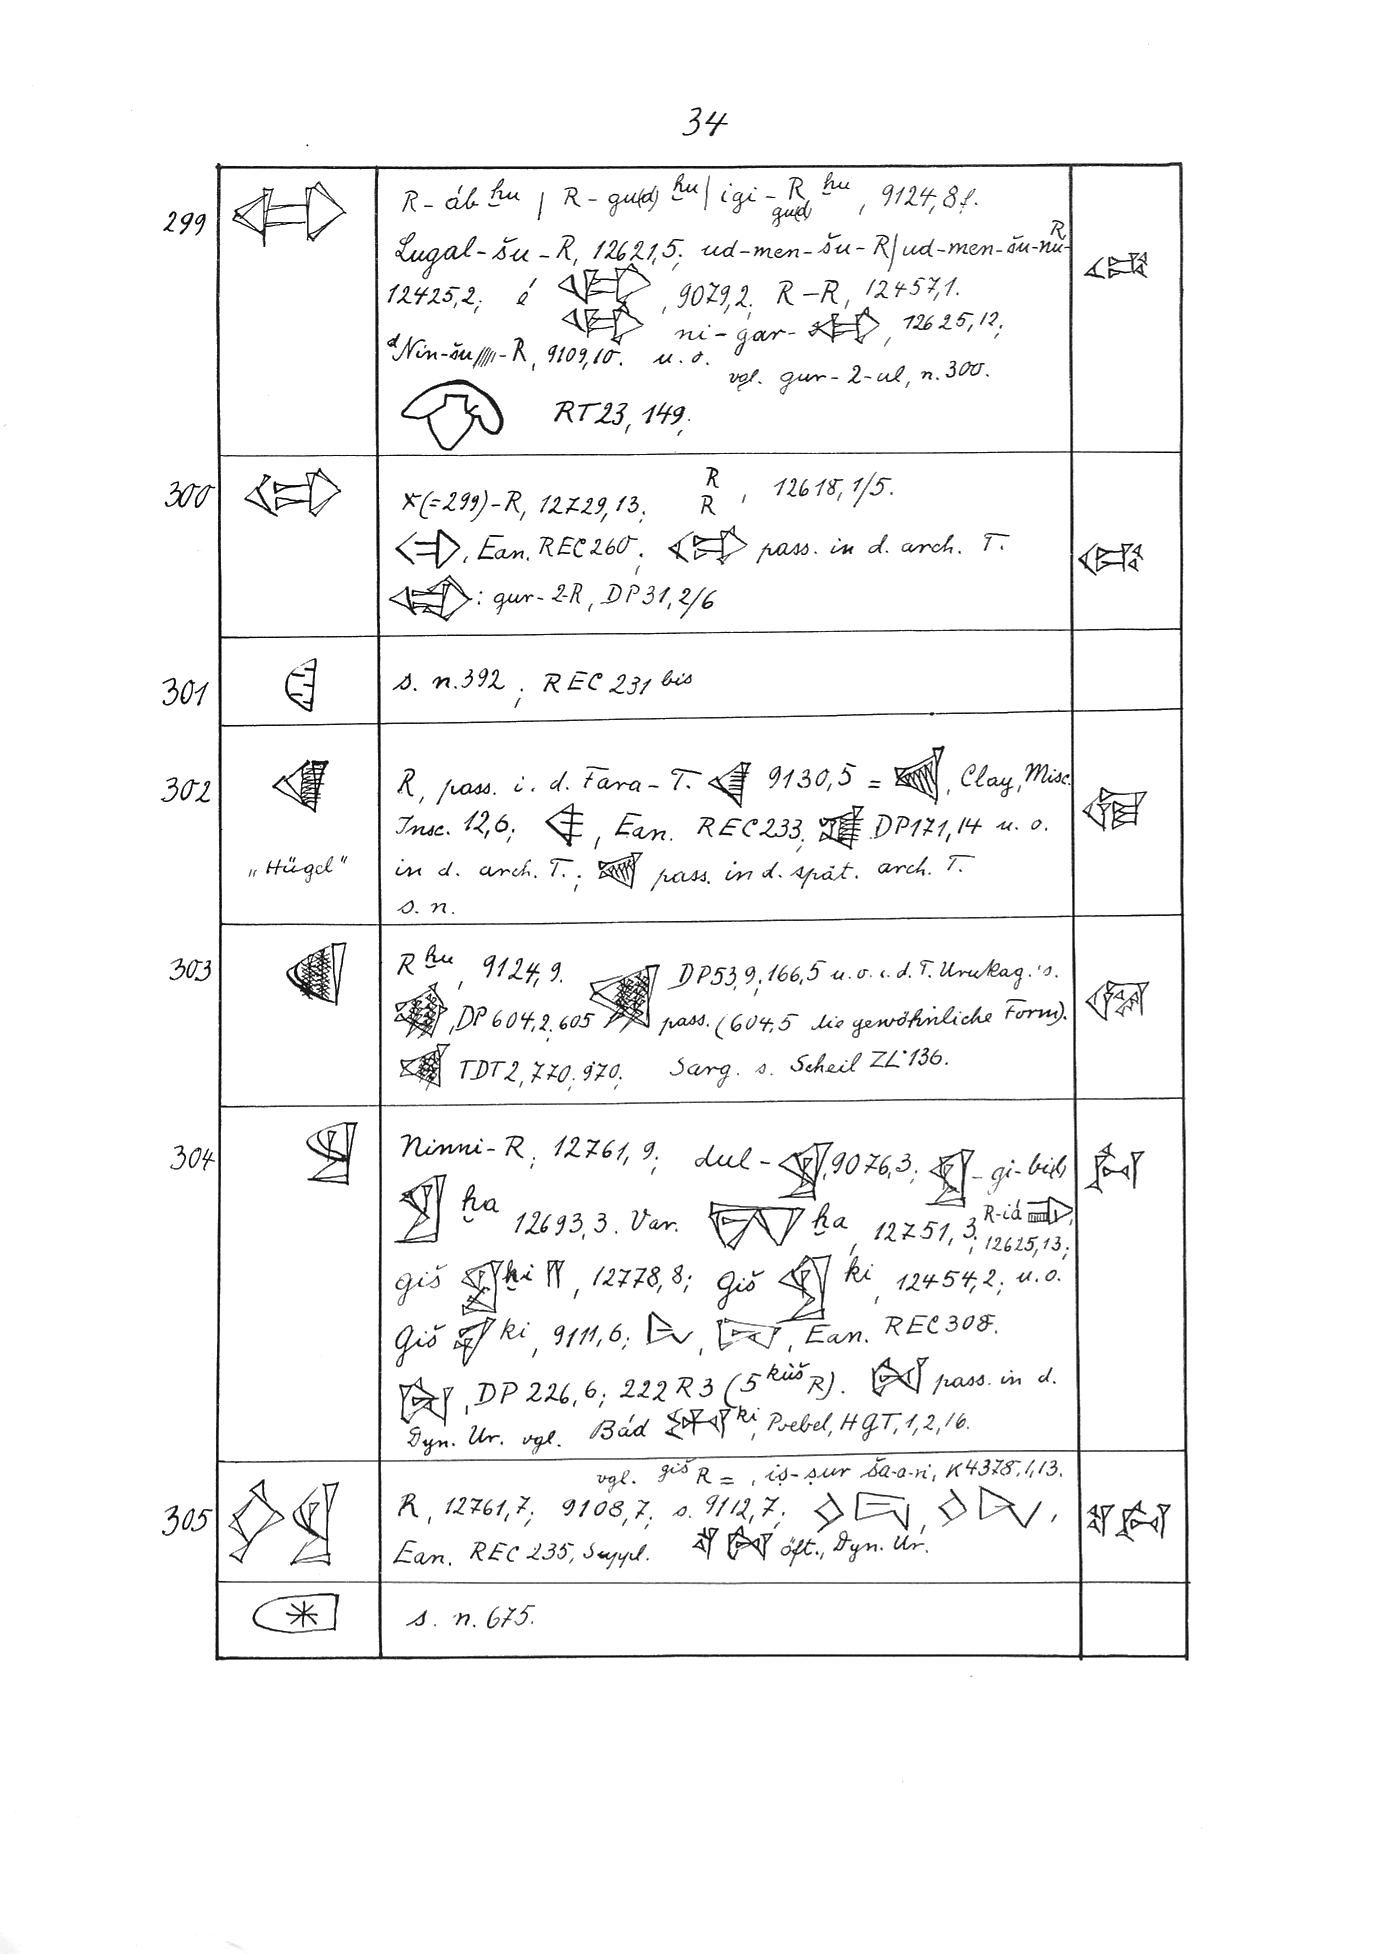 34
299
R - áb ḫu / R - gu(d) ḫu / igi - R ḫu , 9124,8f.
gu(d)
Lugal - šu - R, 12621,5; ud-men-šu-R / ud-men-šu-nu-R
12425,2; é , 9079,2; R-R, 12457,1.
ni - gar- , 12625,12;
ᵈNin-šu -R, 9109,10. u. o.
vgl. gur - 2-ul, n. 300.
RT 23, 149;
300
x(=299)-R, 12729,13; R R , 12618,1/5.
, Ean. REC 260; pass. in d. arch. T.
: gur-2-R, DP 31,2/6
301
s. n. 392 ; REC 231 bis
302
R, pass. i. d. Fara-T. 9130,5 = , Clay, Misc.
Insc. 12,6; , Ean. REC 233; DP 171,14 u. o.
„Hügel“
in d. arch. T.; pass. in d. spät. arch. T.
s. n.
303
R ḫu , 9124,9. DP 53,9; 166,5 u. o. i. d. T. Urukag.'s.
, DP 604,2; 605 pass. (604,5 die gewöhnliche Form).
TDT 2, 770; 970; Sarg. s. Scheil ZL 136.
304
Ninni-R; 12761,9; dul- , 9076,3; - gi-bi(l)
ḫa 12693,3. Var. ḫa , 12751,3; R-iá
12625,13;
giš ki , 12778,8; Giš ki , 12454,2; u. o.
Giš ki , 9111,6; , , Ean. REC 308.
, DP 226,6; 222 R 3 (5 kùš R). pass. in d.
Dyn. Ur. vgl. Bád ki, Poebel, HGT, 1,2,16.
305
vgl. giš R = , iṣ-ṣur ša-a-ri, K 4378. 1,13.
R, 12761,7; 9108,7; s. 9112,7; , ,
Ean. REC 235, Suppl. öft., Dyn. Ur.
s. n. 675.